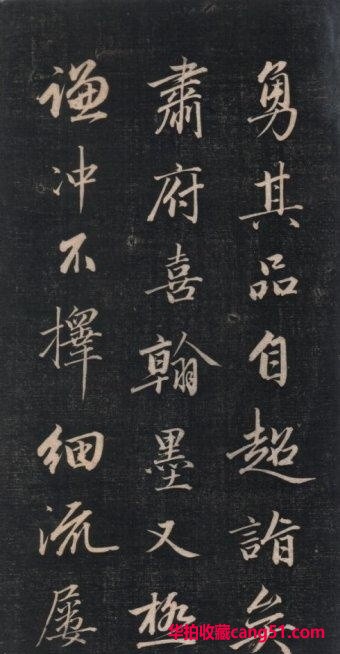 勇其品自超詣矣
肅府喜翰墨又極
謙沖不擇細流屢
华拍收藏cang51.com